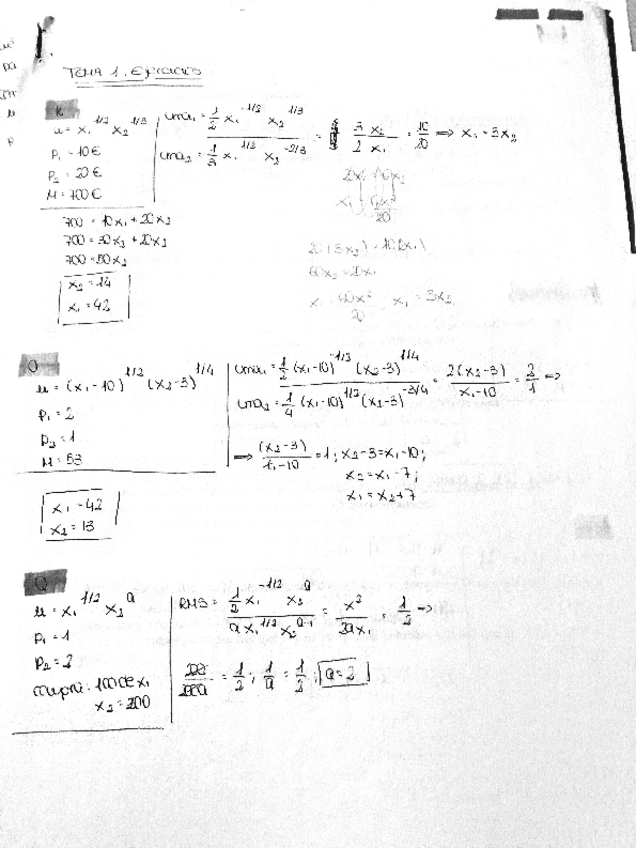 TEMA 1. Ejercicios
K
u = x₁^1/2 x₂^1/3
p₁ = 10€
p₂ = 20€
M = 700€
uma₁ = 1/2 x₁^-1/2 x₂^1/3
uma₂ = 1/3 x₁^1/2 x₂^-2/3
= 3 x₂ / 2 x₁ = 10/20 ⇒ x₁ = 3x₂
700 = 10x₁ + 20x₂
700 = 30x₂ + 20x₂
700 = 50x₂
x₂ = 14
x₁ = 42
20(3x₂) = 10(2x₁)
60x₂ = 20x₁
x₁ = 3x₂
20
O
u = (x₁-10)^1/2 (x₂-3)^1/4
p₁ = 2
p₂ = 1
M = 53
uma₁ = 1/2 (x₁-10)^-1/2 (x₂-3)^1/4
uma₂ = 1/4 (x₁-10)^1/2 (x₂-3)^-3/4
= 2(x₂-3) / x₁-10 = 2/1 ⇒
⇒ (x₂-3) / x₁-10 = 1; x₂-3 = x₁-10;
x₂ = x₁-7;
x₁ = x₂+7
x₁ = 42
x₂ = 13
Q
u = x₁^1/2 x₂^a
p₁ = 1
p₂ = 2
compra: 100 de x₁
x₂ = 200
RMS = 1/2 x₁^-1/2 x₂^a / a x₁^1/2 x₂^a-1 = x₂ / 2ax₁ = 1/2 ⇒
= 1/2; 1/a = 1/2; a = 2